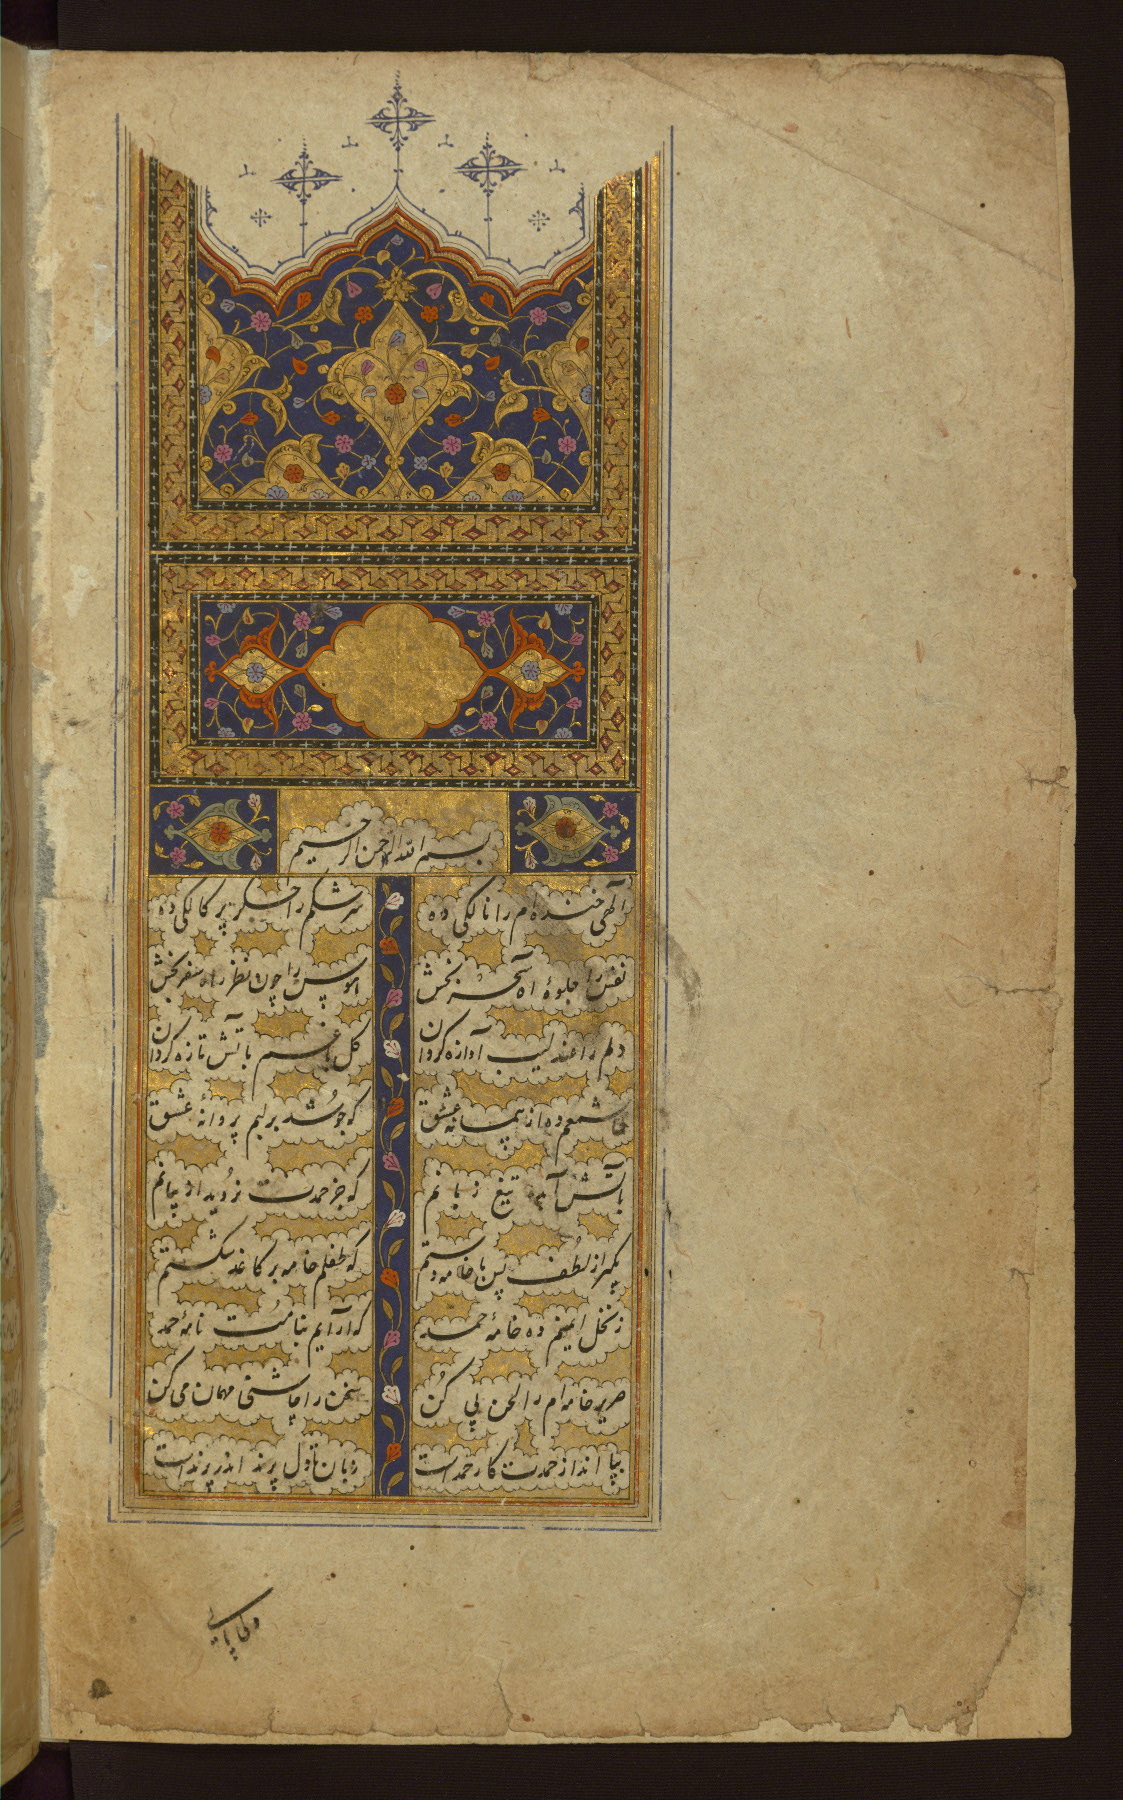 بسم الله الرحمن الرحیم
الهی خنده‌ام را نالگی ده سرشکم را جگر پرکالگی ده
نفس را جلوهٔ آه سحر بخش هوس را چون نظر راه سفر بخش
دلم را عندلیب آوازه گردان گل باغم بآتش تازه گردان
بشمعم ده از پیمانه عشق که جوشد بر لبم پروانهٔ عشق
بآتش آب ده تیغ زبانم که جز حمدت نروید از بیانم
بگیر از لطف پس با خامه دستم که طفلم خامه بر کاغذ شکستم
ز نخل ایمنم ده خامهٔ حمد که آرایم بنامت نامهٔ حمد
صریر خامه‌ام را لحن پی کن سخن را چاشنی مهمان می کن
بپا انداز حمدت کار حمد است زبان تا دل پرند اندر پرند است